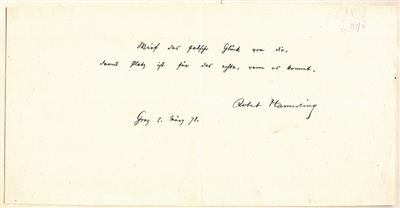 Wirf das falsche Glück von dir,
damit Platz ist für das rechte, wenn es kommt.
Robert Hamerling
Graz 2. März 78.